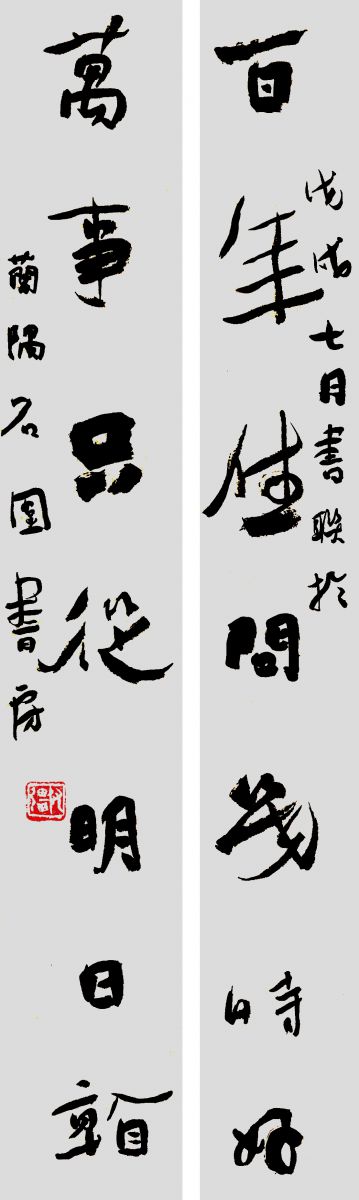 戊戌七月書聯於
百年問幾時好
萬事只從明日
蘭隅名園書房